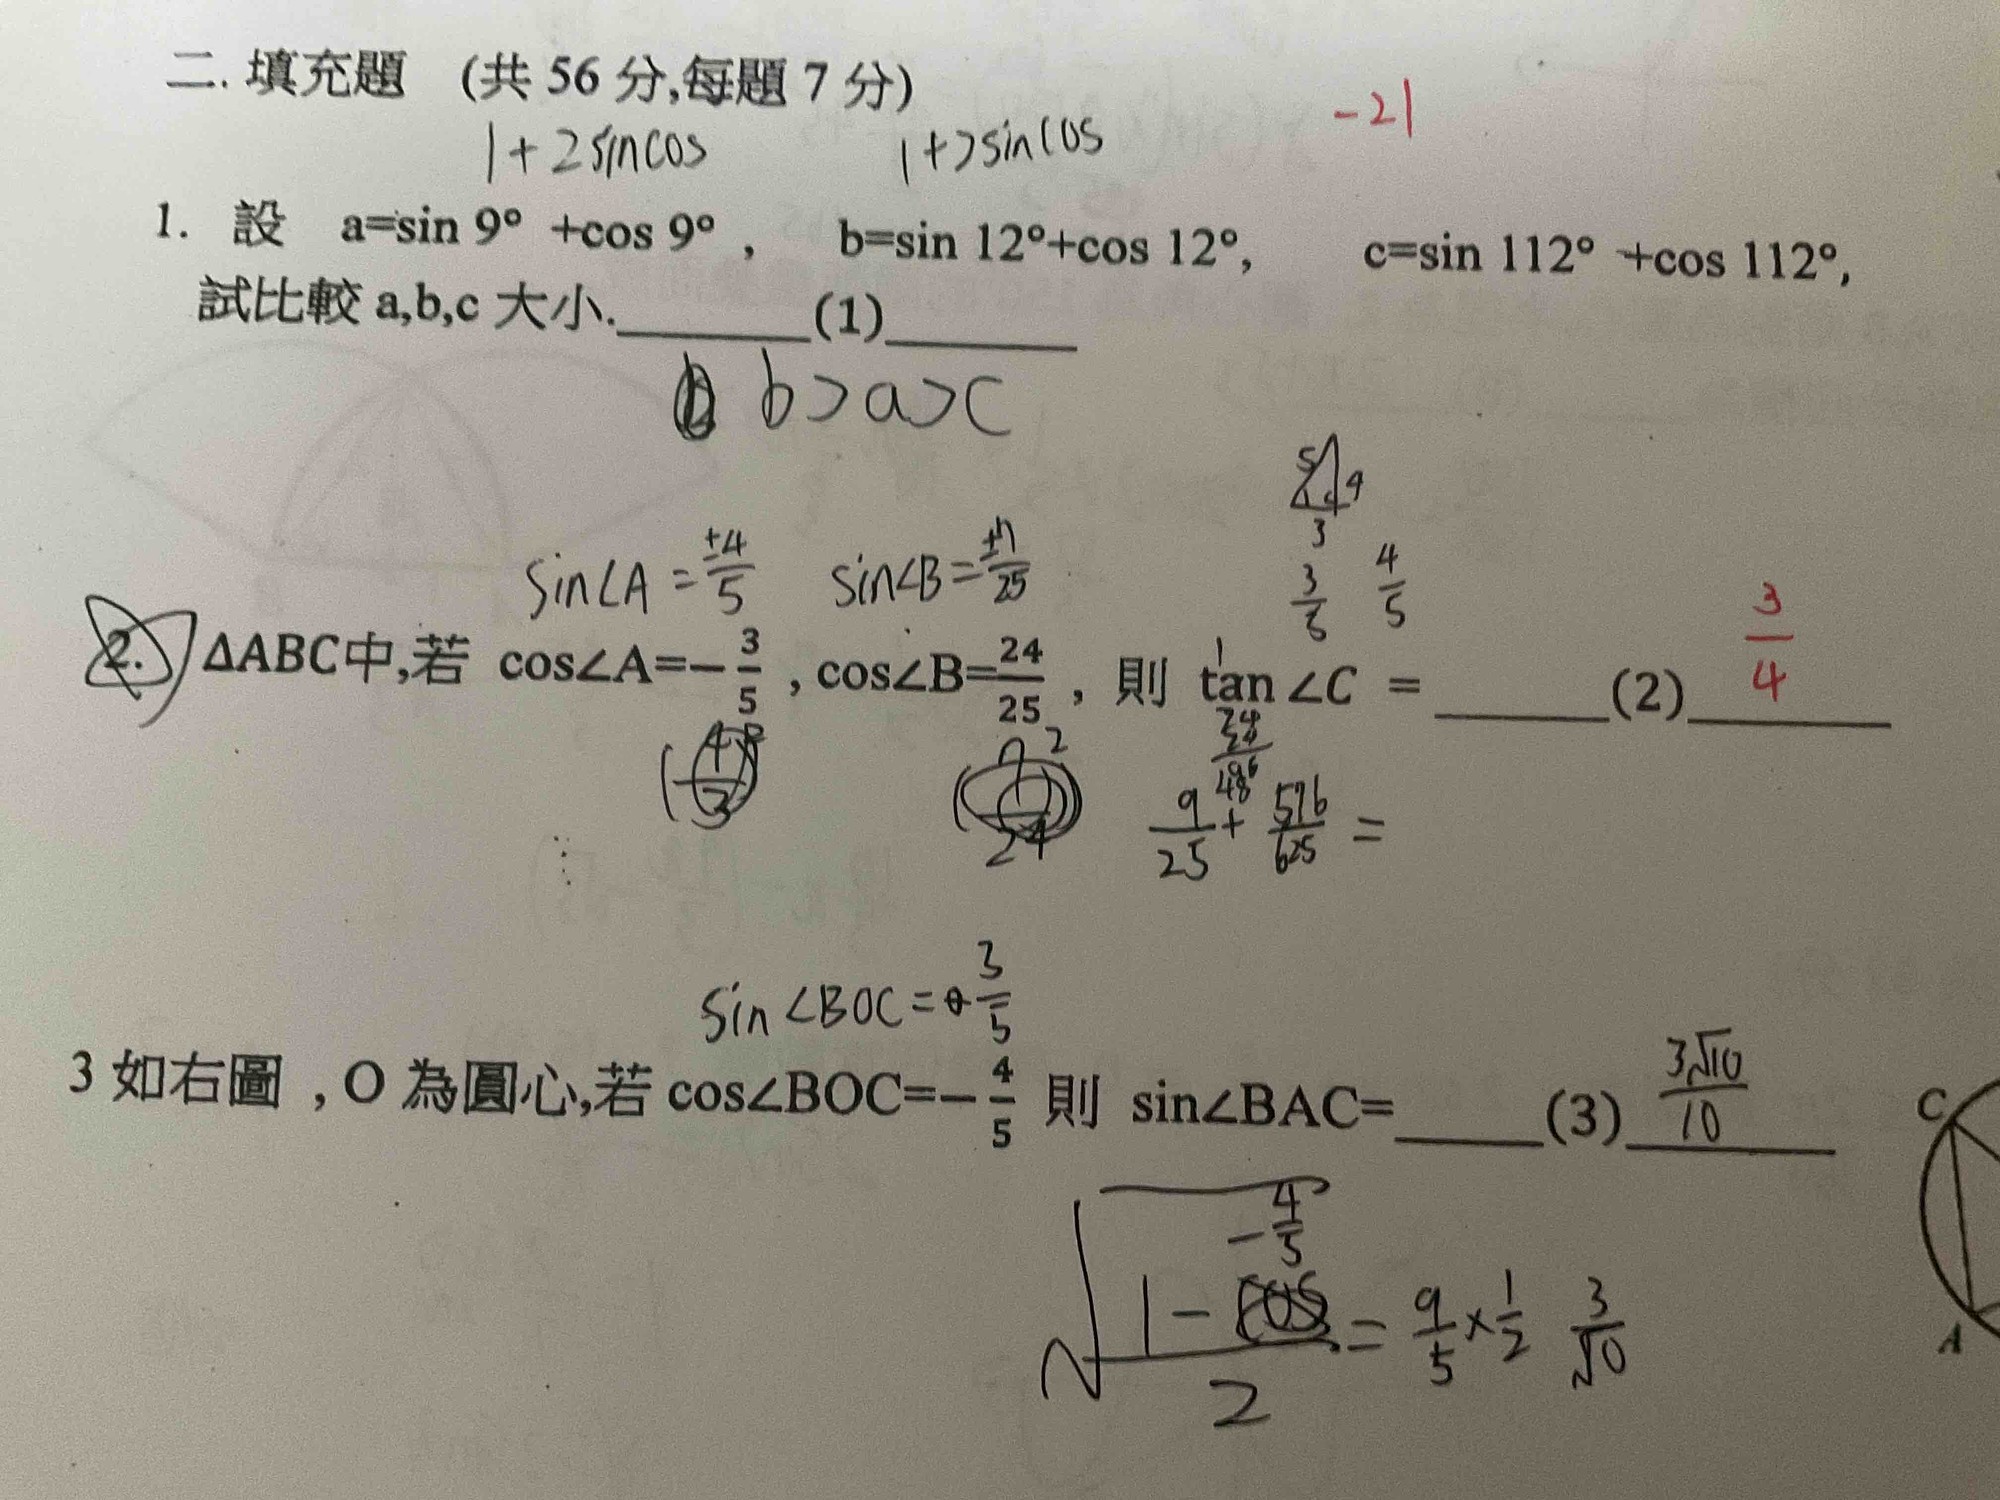 二. 填充題 (共 56 分,每題 7 分)
-21
1+2sincos 1+2sincos
1. 設 a=sin 9° +cos 9° , b=sin 12°+cos 12°, c=sin 112° +cos 112°,
試比較 a,b,c 大小.______(1)______
b>a>c
5 4
3
sin∠A=±4/5 sin∠B=±7/25 3/5 4/5
2. ΔABC中,若 cos∠A=-3/5 , cos∠B=24/25 , 則 tan ∠C = ______(2)______ 3/4
9/25 + 576/625 =
sin∠BOC= 3/5
3 如右圖 , O 為圓心,若 cos∠BOC=-4/5 則 sin∠BAC=_____(3)______ 3√10/10
C
-4/5
√ 1- /2 = 9/5 × 1/2 3/√10
A